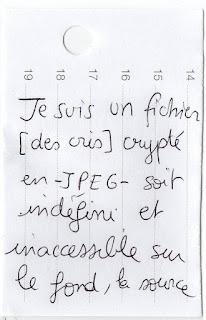 19 18 17 16 15 14
Je suis un fichier
[des cris] crypté
en -JPEG- soit
indéfini et
inaccessible sur
le fond, la source